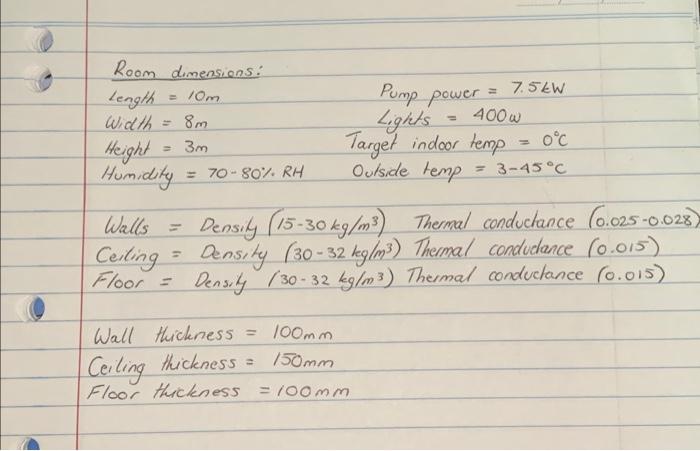 Room dimensions:
Length = 10m
Width = 8m
Height = 3m
Humidity = 70-80% RH
Pump power = 7.5kW
Lights = 400w
Target indoor temp = 0°C
Outside temp = 3-45°C
Walls = Density (15-30 kg/m³) Thermal conductance (0.025-0.028)
Ceiling = Density (30-32 kg/m³) Thermal conductance (0.015)
Floor = Density (30-32 kg/m³) Thermal conductance (0.015)
Wall thickness = 100mm
Ceiling thickness = 150mm
Floor thickness = 100mm